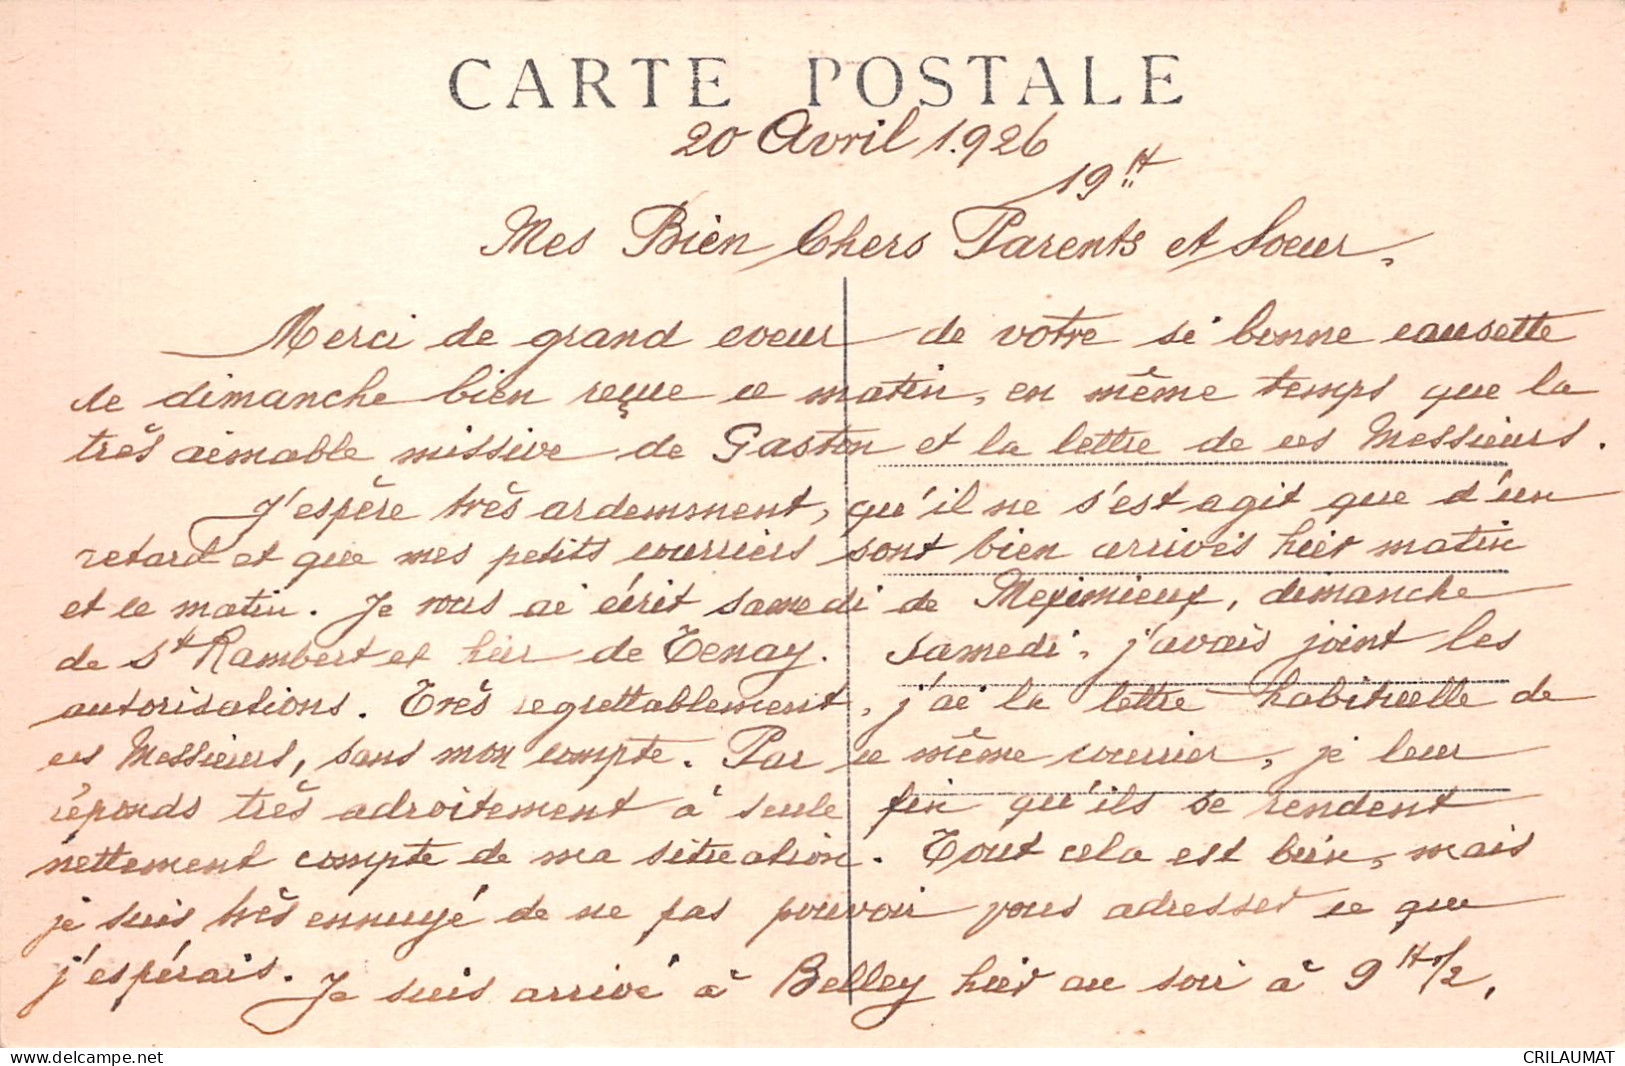 CARTE POSTALE
20 Avril 1.926
19 H
Mes Bien Chers Parents et Soeur,
Merci de grand coeur de votre si bonne causette
de dimanche bien reçue ce matin, en même temps que la
très aimable missive de Gaston et la lettre de ces Messieurs.
J'espère très ardemment, qu'il ne s'est agit que d'un
retard et que mes petits courriers sont bien arrivés hier matin
et ce matin. Je vous ai écrit samedi de Meximieux, dimanche
de St Rambert et hier de Tenay. Samedi, j'avais joint les
autorisations. Très regrettablement, j'ai la lettre habituelle de
ces Messieurs, sans mon compte. Par ce même courrier, je leur
réponds très adroitement à seule fin qu'ils se rendent
nettement compte de ma situation. Tout cela est bien, mais
je suis très ennuyé de ne pas pouvoir vous adresser ce que
j'espérais. Je suis arrivé à Belley hier au soir à 9 H 1/2,
www.delcampe.net
CRILAUMAT